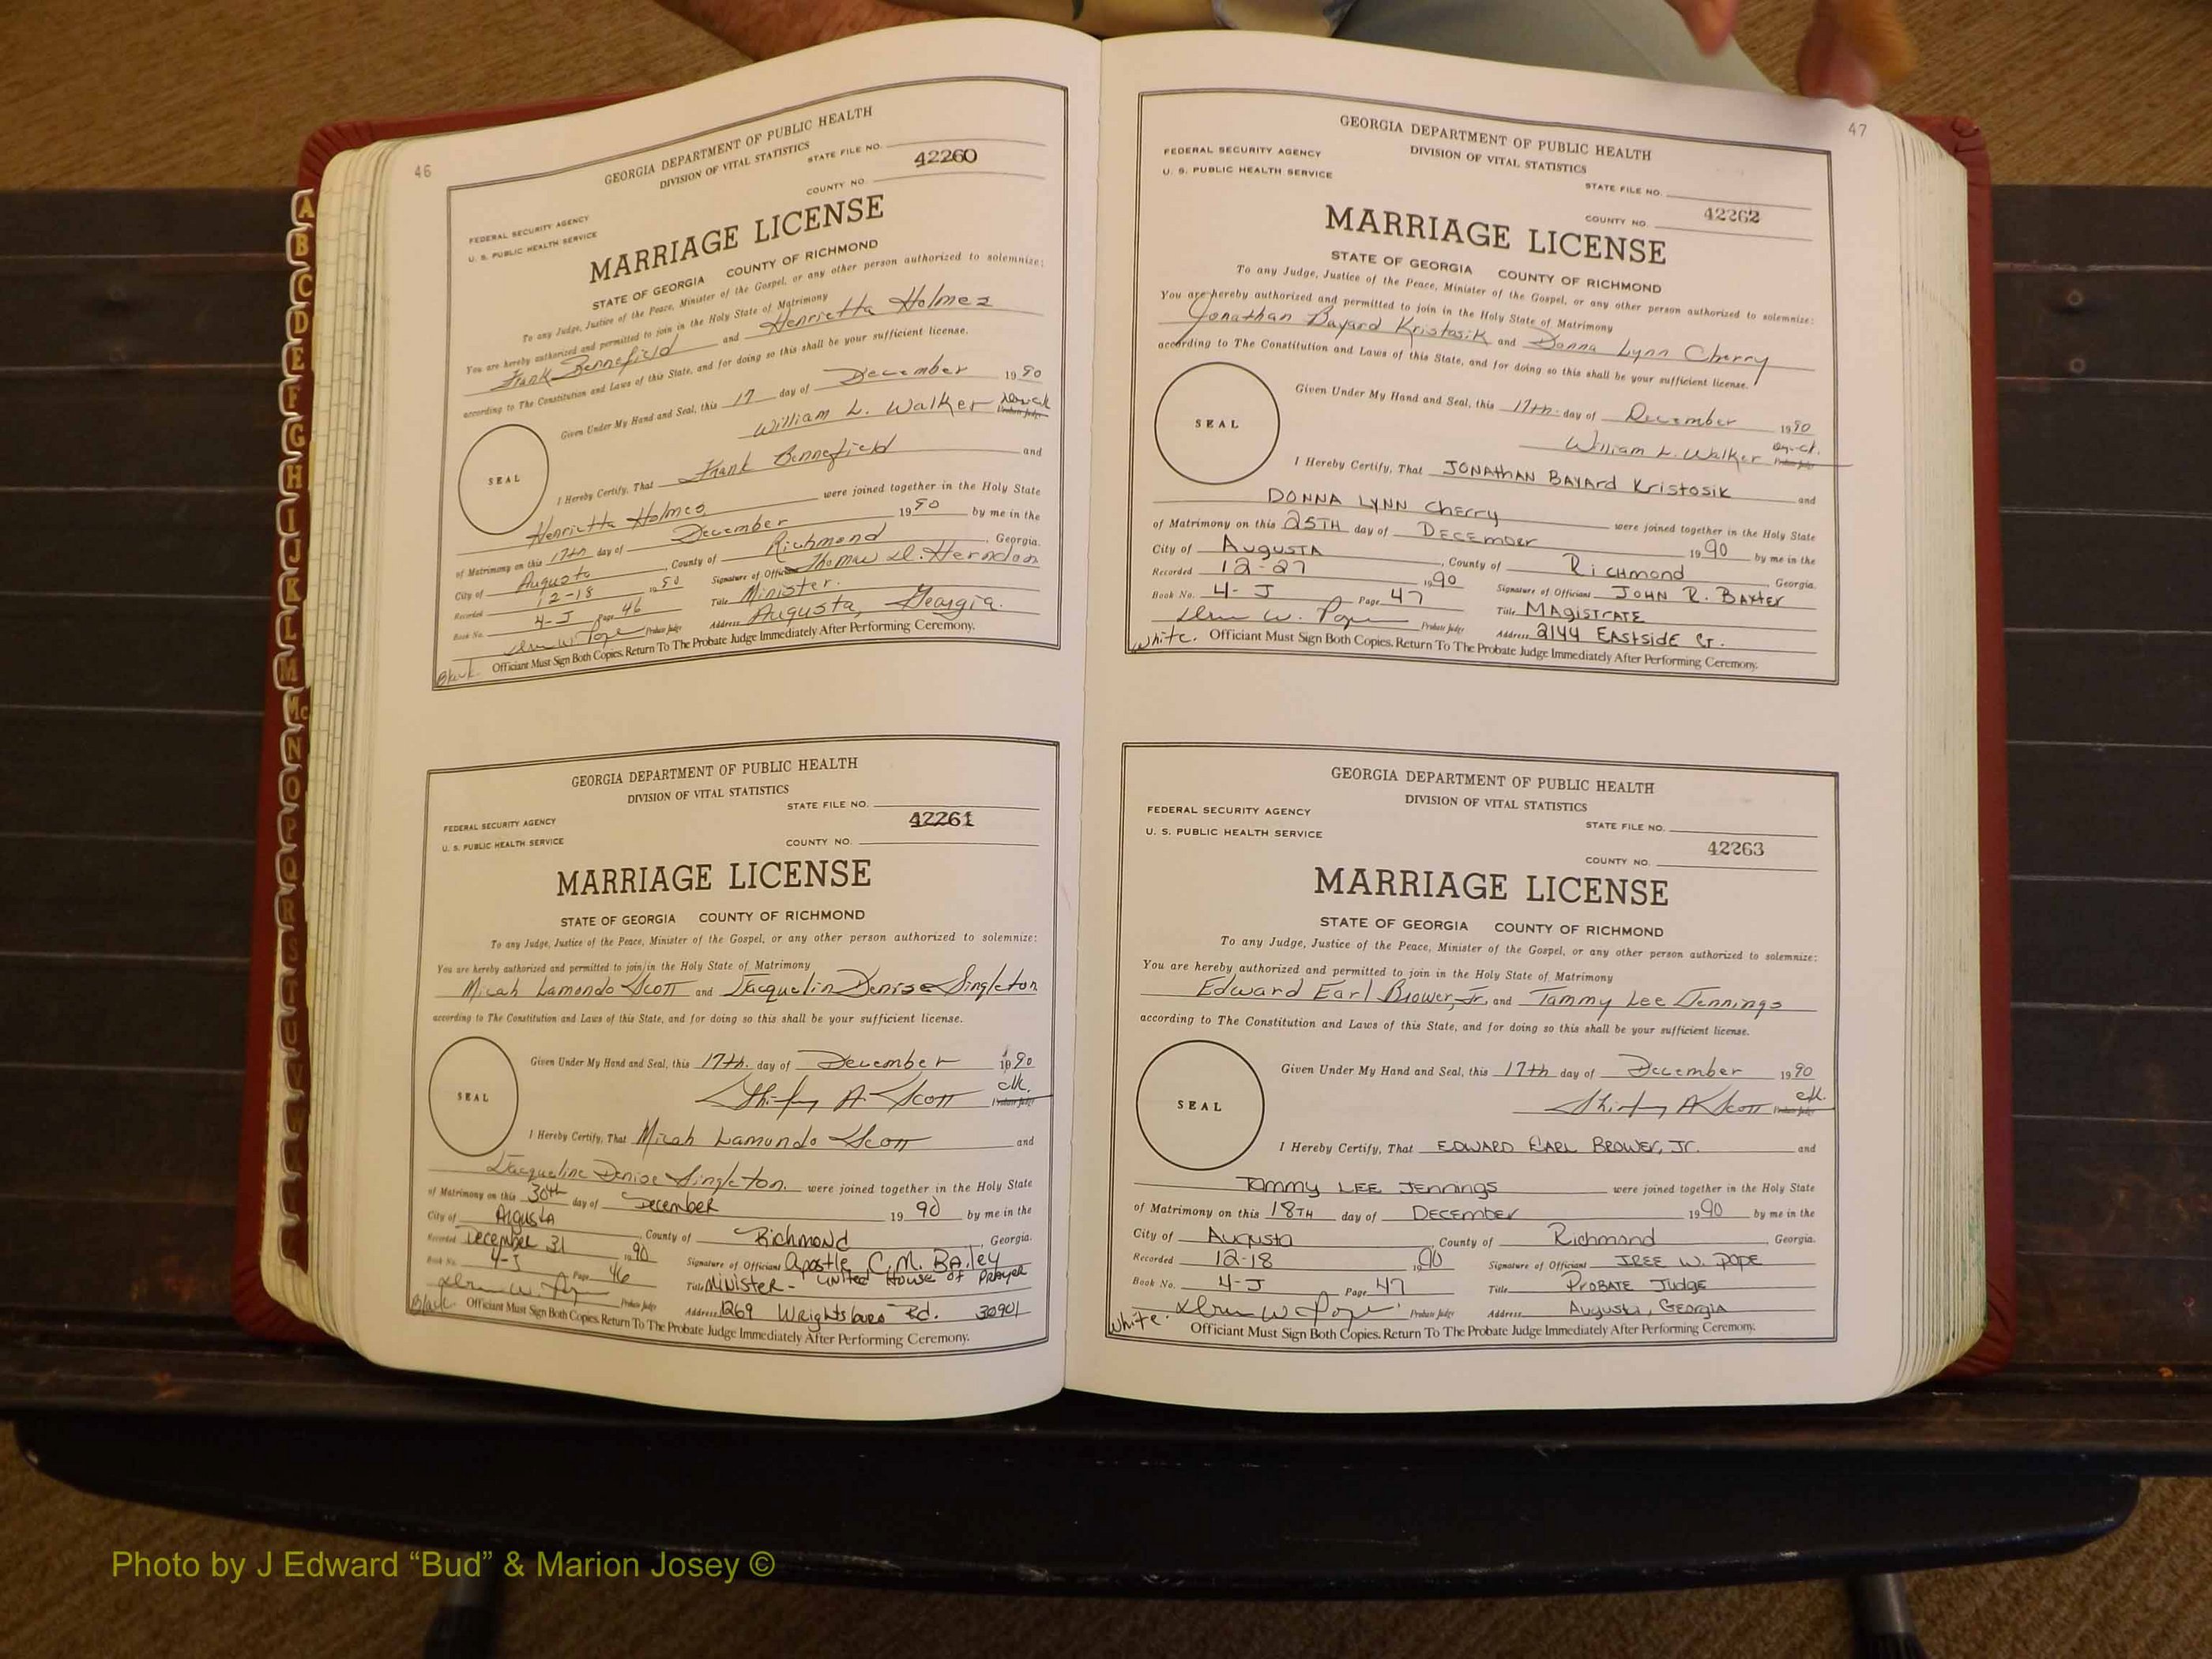 46
GEORGIA DEPARTMENT OF PUBLIC HEALTH
DIVISION OF VITAL STATISTICS
STATE FILE NO.
42260
COUNTY NO.
FEDERAL SECURITY AGENCY
U. S. PUBLIC HEALTH SERVICE
MARRIAGE LICENSE
STATE OF GEORGIA COUNTY OF RICHMOND
To any Judge, Justice of the Peace, Minister of the Gospel, or any other person authorized to solemnize:
You are hereby authorized and permitted to join in the Holy State of Matrimony
Frank Bennefield and Henrietta Holmes
according to The Constitution and Laws of this State, and for doing so this shall be your sufficient license.
Given Under My Hand and Seal, this 17 day of December 1990
William L. Walker Probate Judge
SEAL
I Hereby Certify, That Frank Bennefield and
Henrietta Holmes were joined together in the Holy State
of Matrimony on this 17th day of December 1990 by me in the
City of Augusta, County of Richmond, Georgia.
Recorded 12-18 1990 Signature of Official Thomas D. Herndon
Book No. 4-J Page 46 Title Minister.
Probate Judge Address Augusta, Georgia.
Black. Officiant Must Sign Both Copies. Return To The Probate Judge Immediately After Performing Ceremony.
GEORGIA DEPARTMENT OF PUBLIC HEALTH
DIVISION OF VITAL STATISTICS
STATE FILE NO.
42261
FEDERAL SECURITY AGENCY
U. S. PUBLIC HEALTH SERVICE
COUNTY NO.
MARRIAGE LICENSE
STATE OF GEORGIA COUNTY OF RICHMOND
To any Judge, Justice of the Peace, Minister of the Gospel, or any other person authorized to solemnize:
You are hereby authorized and permitted to join in the Holy State of Matrimony
Micah Lamondo Scott and Jacquelin Denise Singleton
according to The Constitution and Laws of this State, and for doing so this shall be your sufficient license.
Given Under My Hand and Seal, this 17th. day of December 1990
Shirley A. Scott clk. Probate Judge
SEAL
I Hereby Certify, That Micah Lamundo Scott and
Jacqueline Denise Singleton. were joined together in the Holy State
of Matrimony on this 30th day of December 1990 by me in the
City of Augusta, County of Richmond, Georgia.
Recorded December 31 1990 Signature of Official Apostle C.M. Bailey
Book No. 4-J Page 46 Title Minister - United House of Prayer
Probate Judge Address 1269 Wrightsboro Rd. 30901
Black. Officiant Must Sign Both Copies. Return To The Probate Judge Immediately After Performing Ceremony.
47
GEORGIA DEPARTMENT OF PUBLIC HEALTH
DIVISION OF VITAL STATISTICS
FEDERAL SECURITY AGENCY
U. S. PUBLIC HEALTH SERVICE
STATE FILE NO.
42262
COUNTY NO.
MARRIAGE LICENSE
STATE OF GEORGIA COUNTY OF RICHMOND
To any Judge, Justice of the Peace, Minister of the Gospel, or any other person authorized to solemnize:
You are hereby authorized and permitted to join in the Holy State of Matrimony
Jonathan Bayard Kristosik and Donna Lynn Cherry
according to The Constitution and Laws of this State, and for doing so this shall be your sufficient license.
Given Under My Hand and Seal, this 17th. day of December 1990
William L. Walker Probate Judge
SEAL
I Hereby Certify, That JONAthAN BAYARd Kristosik and
DONNA LYNN Cherry were joined together in the Holy State
of Matrimony on this 25TH day of DECEmber 1990 by me in the
City of AugusTA, County of RicHmond, Georgia.
Recorded 12-27 1990 Signature of Official JOHN R. BAxter
Book No. 4-J Page 47 Title MAgistrATE
Probate Judge Address 2144 EAStsidE Ct.
White. Officiant Must Sign Both Copies. Return To The Probate Judge Immediately After Performing Ceremony.
GEORGIA DEPARTMENT OF PUBLIC HEALTH
DIVISION OF VITAL STATISTICS
FEDERAL SECURITY AGENCY
U. S. PUBLIC HEALTH SERVICE
STATE FILE NO.
42263
COUNTY NO.
MARRIAGE LICENSE
STATE OF GEORGIA COUNTY OF RICHMOND
To any Judge, Justice of the Peace, Minister of the Gospel, or any other person authorized to solemnize:
You are hereby authorized and permitted to join in the Holy State of Matrimony
Edward Earl Brower, Jr. and Tammy Lee Jennings
according to The Constitution and Laws of this State, and for doing so this shall be your sufficient license.
Given Under My Hand and Seal, this 17th day of December 1990
Shirley A Scott clk. Probate Judge
SEAL
I Hereby Certify, That EDWARD EARL BROWER, JR. and
TAMMY LEE JENNINGS were joined together in the Holy State
of Matrimony on this 18TH day of DECEMBER 1990 by me in the
City of Augusta, County of Richmond, Georgia.
Recorded 12-18 1990 Signature of Official ISREE W. POPE
Book No. 4-J Page 47 Title PROBATE JUDGE
Probate Judge Address Augusta, GEORGIA
White. Officiant Must Sign Both Copies. Return To The Probate Judge Immediately After Performing Ceremony.
A
B
C
D
E
F
G
H
I
J
K
L
M
Mc
N
O
P
Q
R
S
Photo by J Edward “Bud” & Marion Josey ©